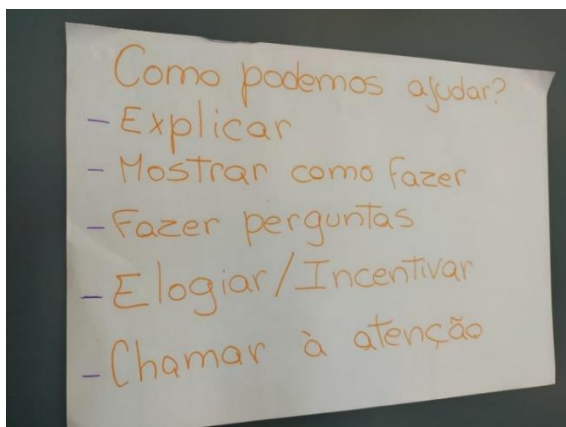 Como podemos ajudar?
- Explicar
- Mostrar como fazer
- Fazer perguntas
- Elogiar/Incentivar
- Chamar à atenção